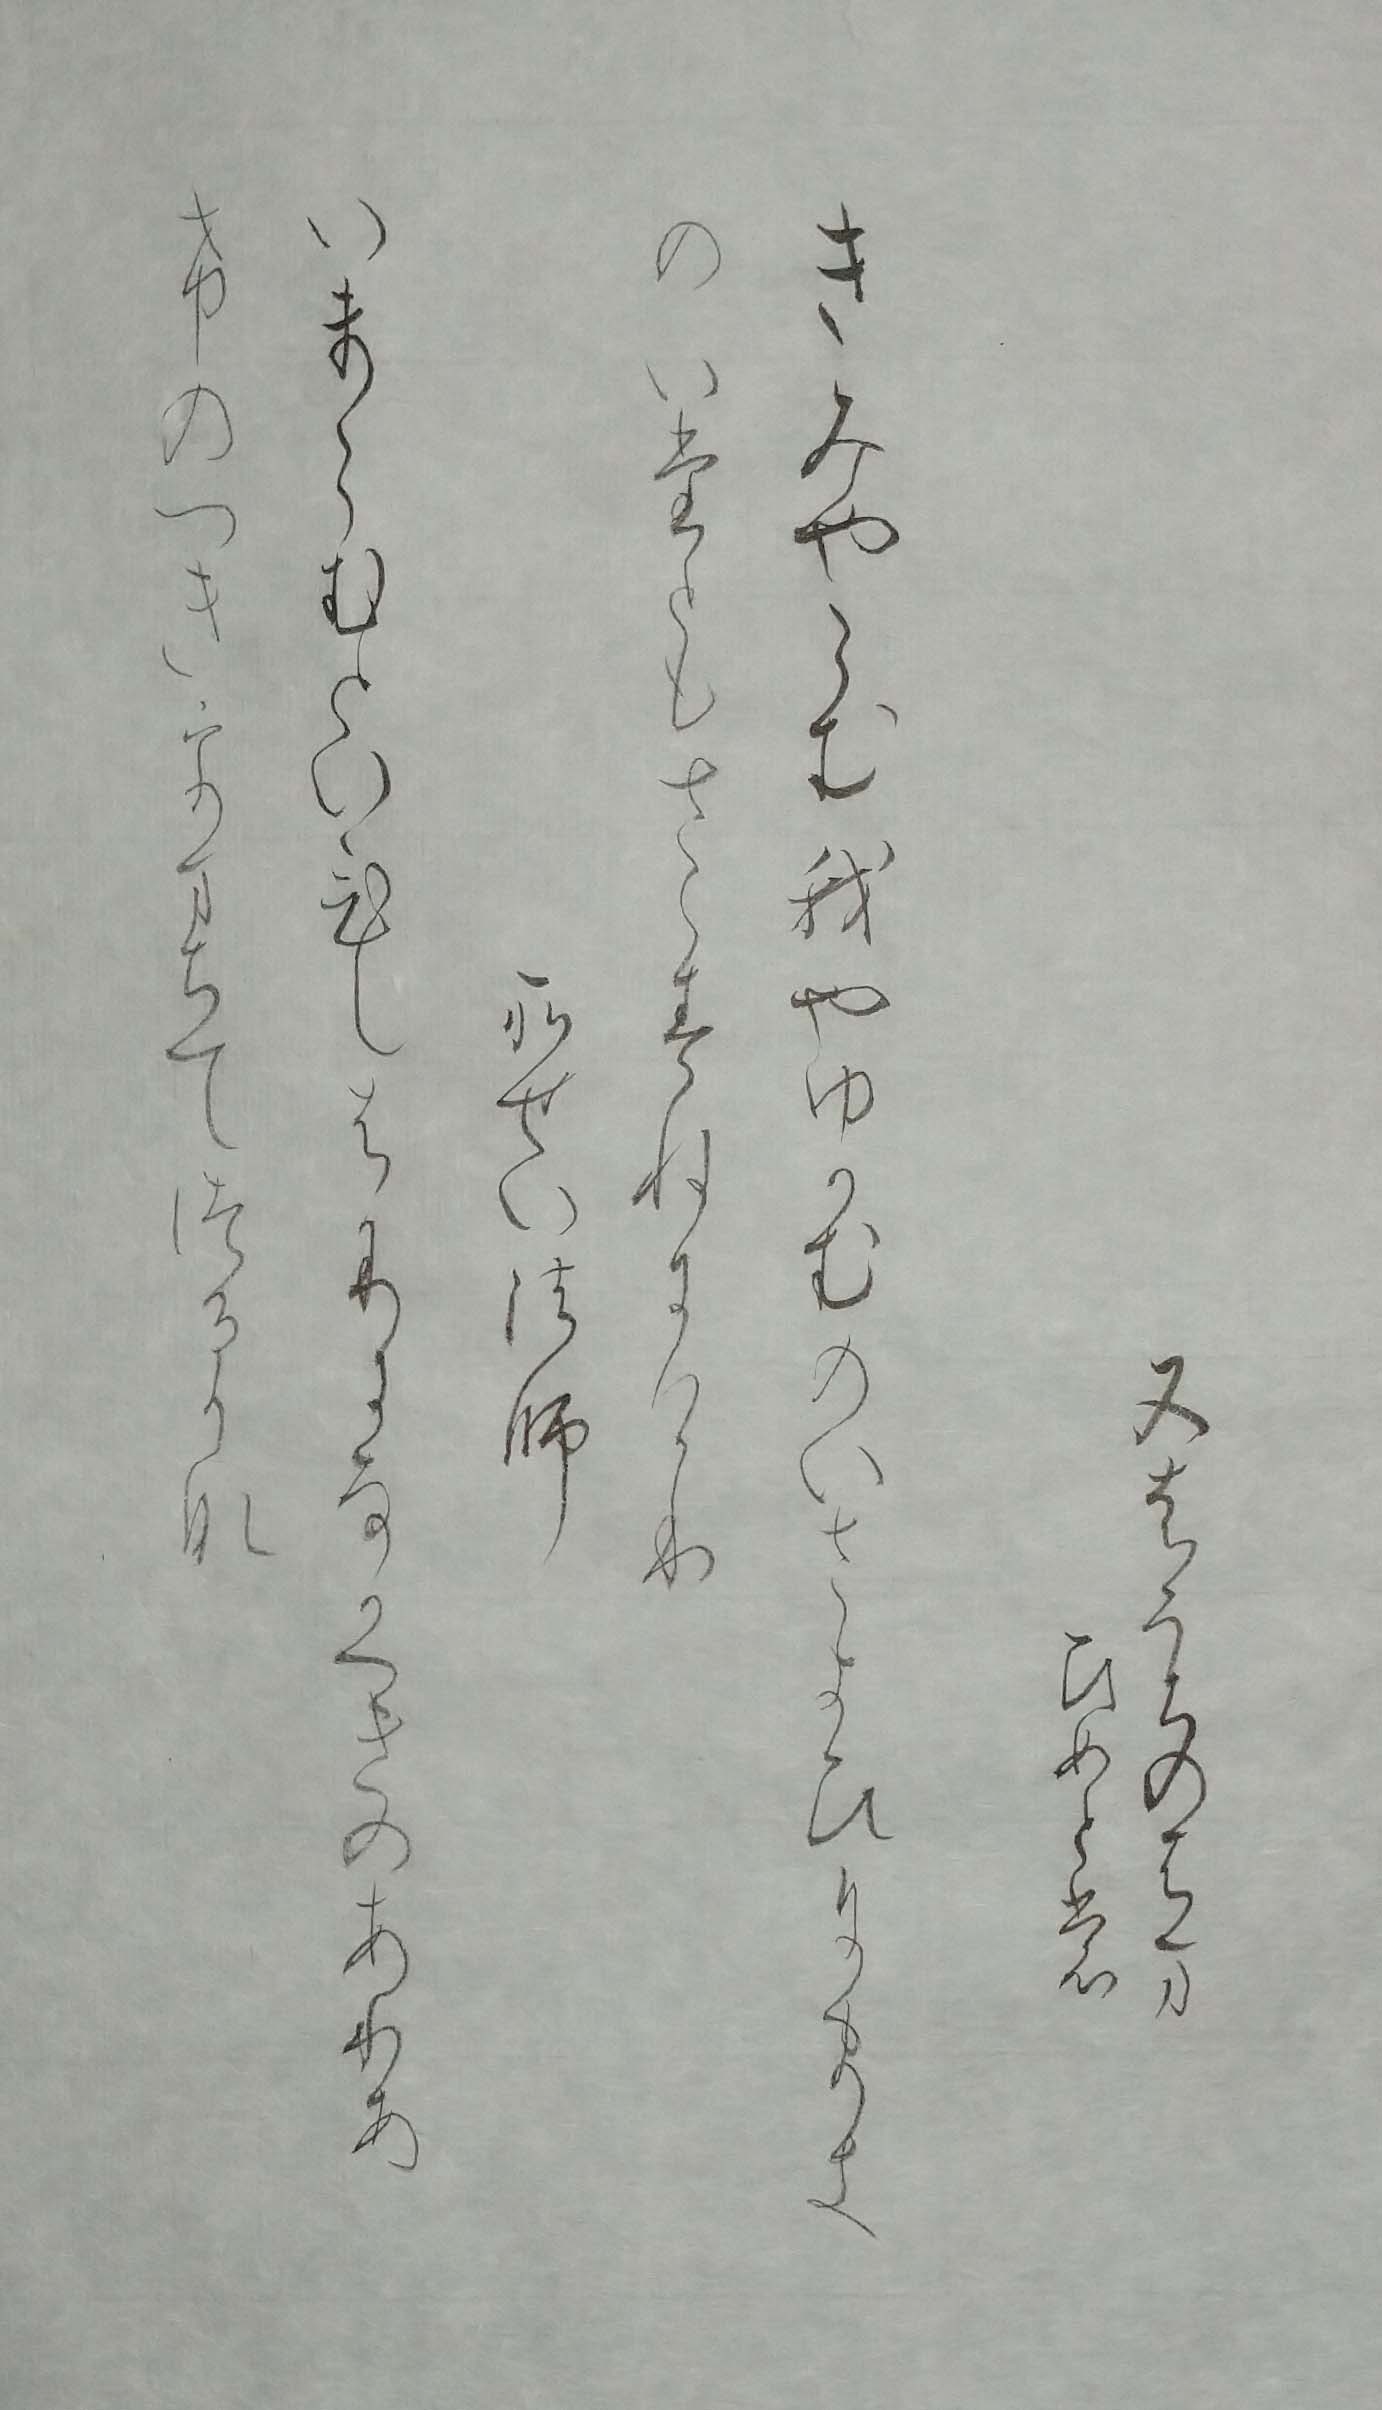 又はうちのたま
ひめとも
きみやこむ我やゆかむのいさよひにまき
のいたともさゝすねにけり
そせい法師
いまこむといひしはかりになかつきのありあ
けのつきをまちいてつるかな